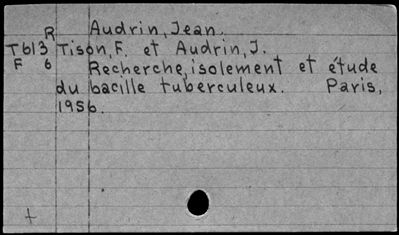 R Audrin, Jean.
T613 Tison, F. et Audrin, J.
F 6 Recherche, isolement et étude
du bacille tuberculeux. Paris,
1956.
+